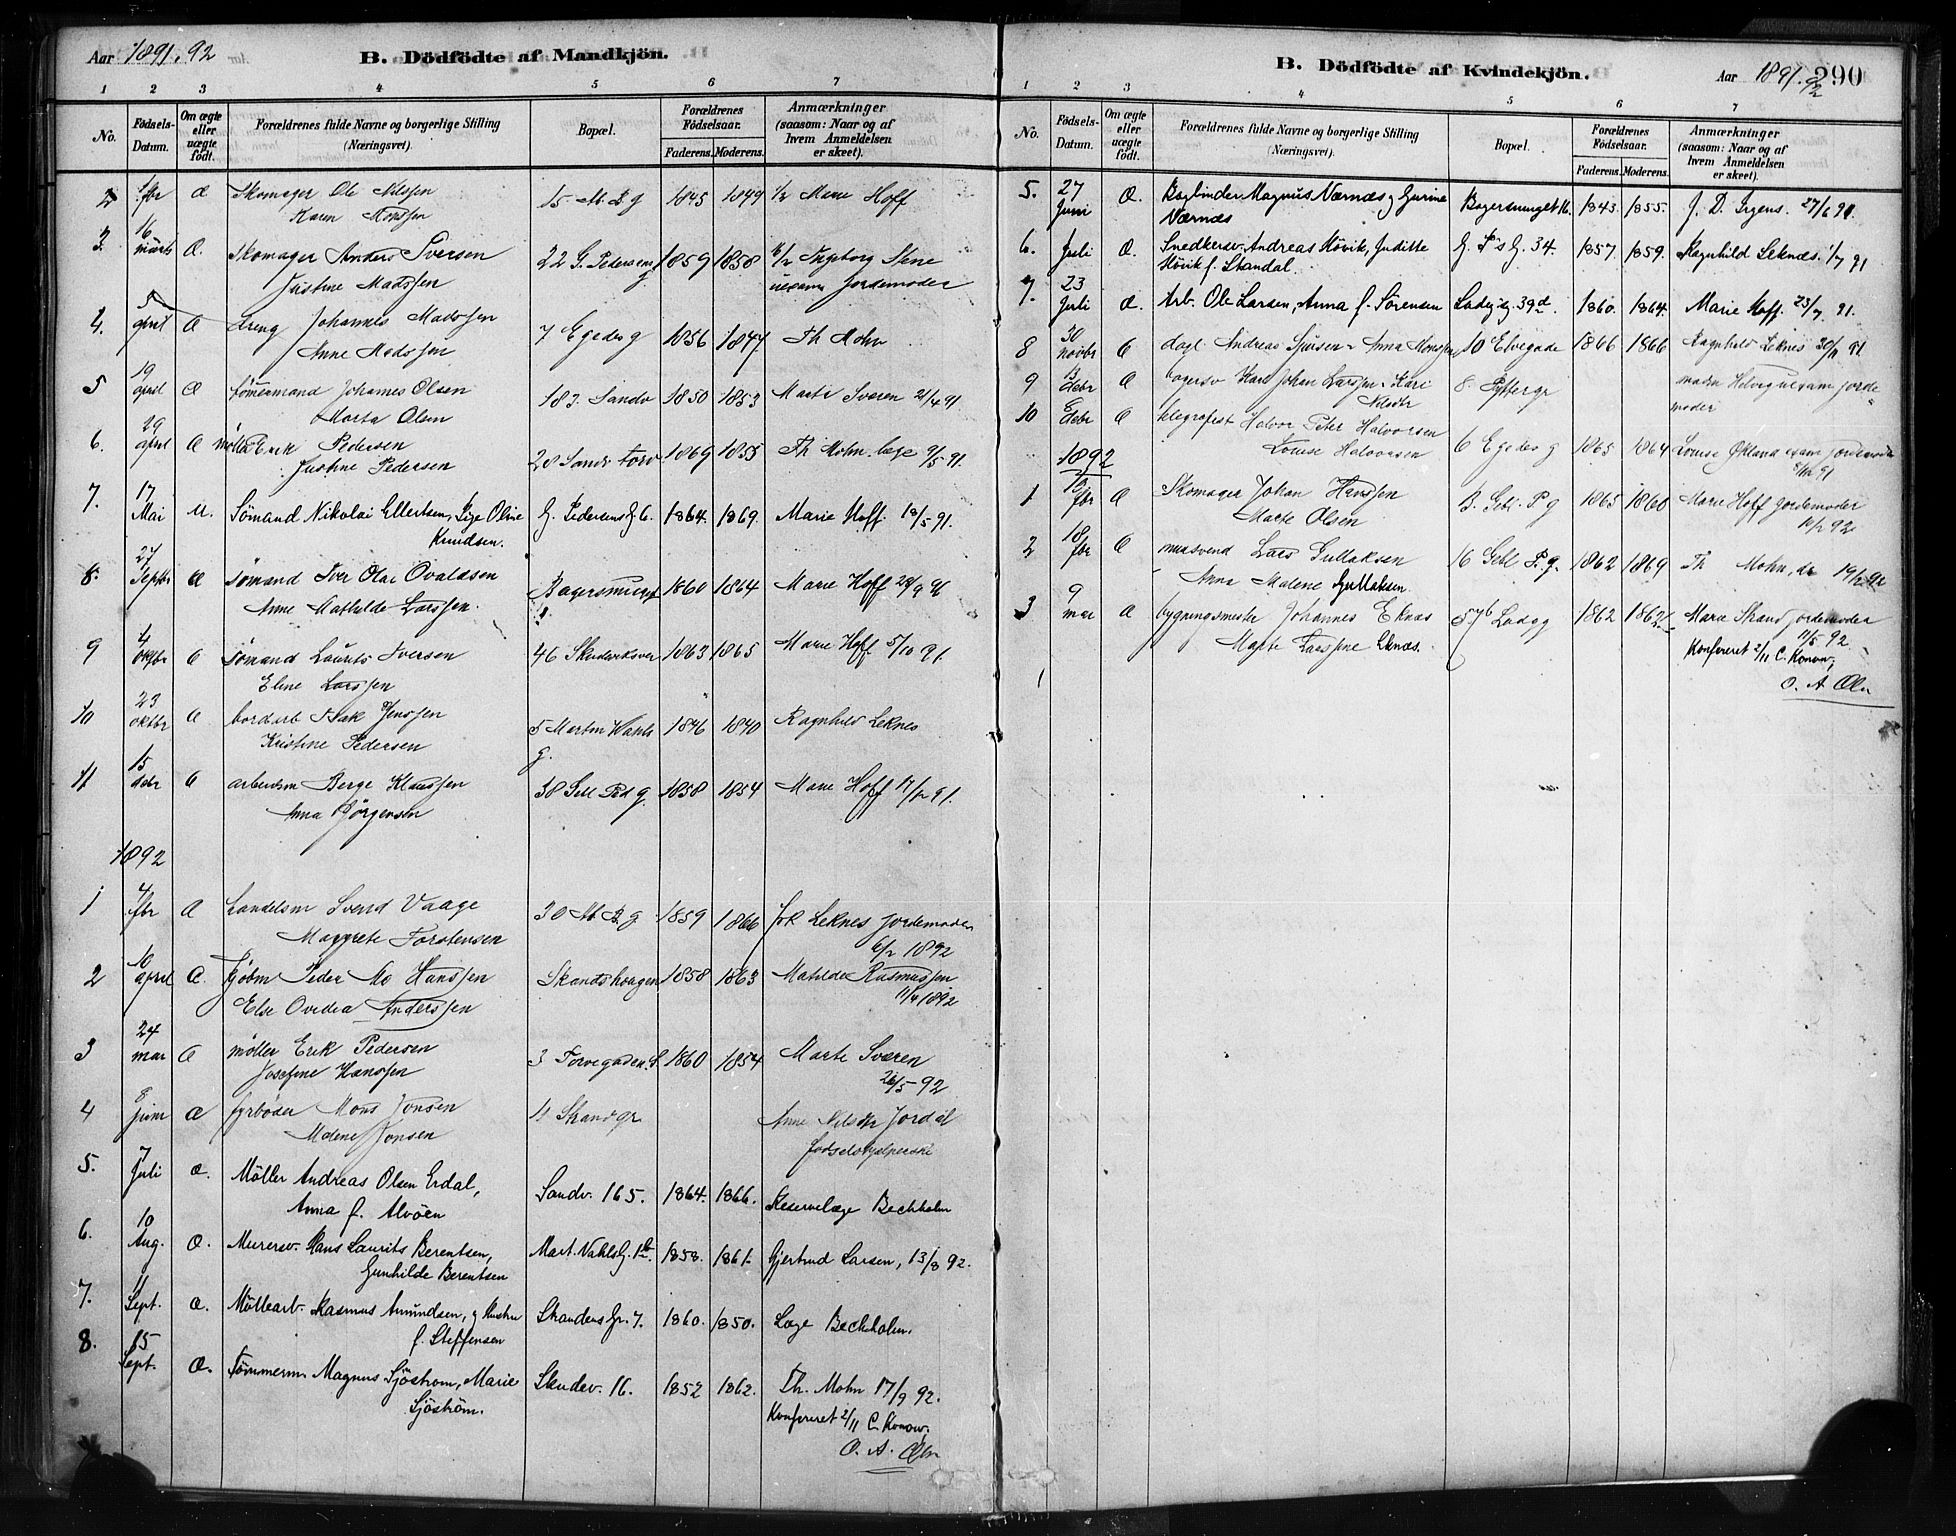 Aar 1891. 92
B. Dödfödte af Mandkjön.
1 2 3 4 5 6 7
No. Födsels-Datum. Om ægte eller uægte födt. Forældrenes fulde Navne og borgerlige Stilling (Næringsvei). Bopæl. Forældrenes Födselsaar. Faderens. Moderens. Anmærkninger (saasom: Naar og af hvem Anmeldelsen er skeet).
2 1 fbr Æ Skomager Ole Nilssen 15 M. B g 1845 1849 1/2 Marie Hoff
Karen Monssen
3. 16 marts Æ. Skomager Anders Iversen 22 G. Pedersens g 1859 1858 Ingeborg Stene
Justine Madssen uexam Jordemoder
4. 5 april Æ dreng Johannes Madssen 7 Egedes g 1856 1847 Th Mohn
Anne Madssen
5 19 april Æ tömermand Johannes Olsen 183. Sandv 1850 1853 Marte Sværen 21/4 91
Marta Olsen
6. 29 april Æ möller Erik Pedersen 28 Sandv torv 1869 1855 Th Mohn. læge 9/5 91.
Justine Pedersen
7. 17 Mai U. Sömand Nikolai Ellertsen, Pige Oline G. Pedersens G. 6. 1864. 1869. Marie Hoff. 18/5 91.
Knudsen.
8. 27 Septbr Æ Sömand Iver Olai Ovaldsen Bagersmuget 1860 1864 Marie Hoff 28/9 91
Anne Mathilde Larssen.
9 4 oktbr Æ sömand Laurits Iversen 46 Skuteviksvei 1863 1865 Marie Hoff 5/10 91.
Eline Larssen
10 23 oktbr Æ bordarb Isak Jenssen 5 Martin Vahls g. 1846 1840 Ragnhild Leknes
Kristine Pedersen
11 15 debr Æ arbeidsm Berge Klaussen 38 Gebl Ped g. 1858 1854 Marie Hoff 17/12 91.
Anna Jörgensen
1892
1 4 fbr Æ handelsm Svend Vaage 30 M B g 1859 1866 frk Leknes jordemoder
Maggrete Torstensen 6/2 1892
2 10 april Æ. kjöbm Peder Mo Hanssen Skandshaugen 1858 1863 Matilde Rasmussen
Else Ovedia Anderssen 11/4 1892
3 24 mai Æ möller Erik Pedersen 3 Torvegaden. S 1860 1854 Marte Sværen
Josefine Hanssen 26/5-92
4 8 juni Æ fyrböder Mons Jonsen 4 Strandgr Anne Nilsen Jordal
Malene Jonsen födselshjelperske
5. 7 Juli Æ. Möller Andreas Olsen Erdal, Sandv. 165. 1864. 1866. Reservelæge Bechholm
Anna f. Alvöen
6. 10 Aug. Æ. Murersv. Hans Laurits Berentsen, Mart. Vahls G. 1b. 1858. 1861. Gjertrud Larsen, 13/8 92.
Gunhilde Berentsen
7. 11 Sept. Æ. Möllearb. Rasmus Amundsen, og Hustru Strandens Gr. 7. 1860. 1850. Læge Bechholm.
f. Steffensen
8. 15 Sept. Æ. Tömmerm. Magnus Sjöström, Marie Skudev. 16. 1852 1862. Th. Mohn 17/9 92.
Sjöström. Konfereret 2/11 C. Konow,
O. A. Olsn
B. Dödfödte af Kvindekjön. Aar 1891. 92 290
1 2 3 4 5 6 7
No. Födsels-Datum. Om ægte eller uægte födt. Forældrenes fulde Navne og borgerlige Stilling (Næringsvei). Bopæl. Forældrenes Födselsaar. Faderens. Moderens. Anmærkninger (saasom: Naar og af hvem Anmeldelsen er skeet).
5. 27 Juni Æ. Bogbinder Magnus Værnæs og Gurine Bagersmuget 16. 1843. 1855. J. D. Irgens. 27/6 91.
Værnæs
6. Juli Æ. Snedkersv. Andreas Hövik, Juditte G. P's G. 34. 1857. 1859. Ragnhild Leknæs. 1/7 91
Hövik f. Standal.
7. 23 Juli Æ. Arb. Ole Larsen, Anna f. Sörensen Ladeg. g. 39d. 1860. 1864. Marie Hoff. 23/7 91.
8 30 novbr Æ dagl Andreas Anna Monssen 10 Elvegade 1866 1866 Ragnhild Leknes 30/11 91.
9 13 debr Æ bagersv Karl Johan Larssen Kari 8. madm Helvig uexam jorde
moder
10 debr Æ telegrafist Halvor Peter Halvorsen 6 Egedes g 1865 1864 Louise Økland exam jordemoder
Louise Halvorsen 91
1892
1 10 fbr Æ Skomager Johan Hanssen B. Gebl. P g 1865 1860 Marie Hoff Jordemoder
Marte Olsen 10/2 92
2 18 fbr Æ mursvend Lars Gullaksen 16 Gebl P. g. 1862 1869 Th Mohn, dr 19/2 92
Anna Malene Gullaksen
3 9 mai Æ bygningsmester Johannes Eknæs 57b Ladeg g 1862 1862 Marie Strand Jordemoder
Marte Larssine Eknæs. 11/5 92.
Konfereret 2/11 C. Konow,
O. A Olsn
1